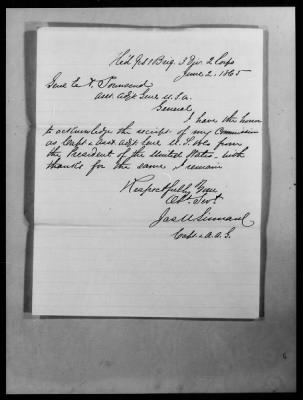 Hd Qrs 1 Brig. 3 Div. 2 Corps
June 2. 1865
Genl E. D. Townsend
Asst. Adjt Genl U.S.A.
General
I have the honor
to acknowledge the receipt of my Commission
as Capt & Asst Adjt Genl U.S. Vols from
the President of the United States - with
thanks for the same I remain
Respectfully Your
Obt. Servt
Jas
Capt & A.A.G.